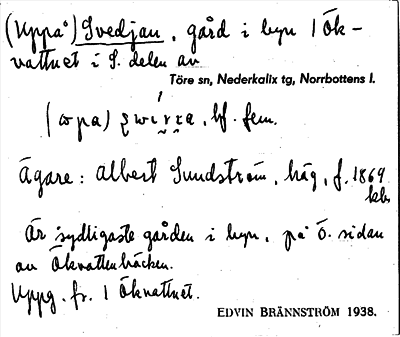 (Uppå) Svedjan, gård i byn 1 Ök-
vattnet i S. delen av
Töre sn, Nederkalix tg, Norrbottens l.
bf. fem.
Ägare: Albert Sundström, häg, f. 1869
kbn
Är sydligaste gården i byn, på Ö. sidan
av Ökvattenbäcken.
Uppg. fr. 1 Ökvattnet.
EDVIN BRÄNNSTRÖM 1938.